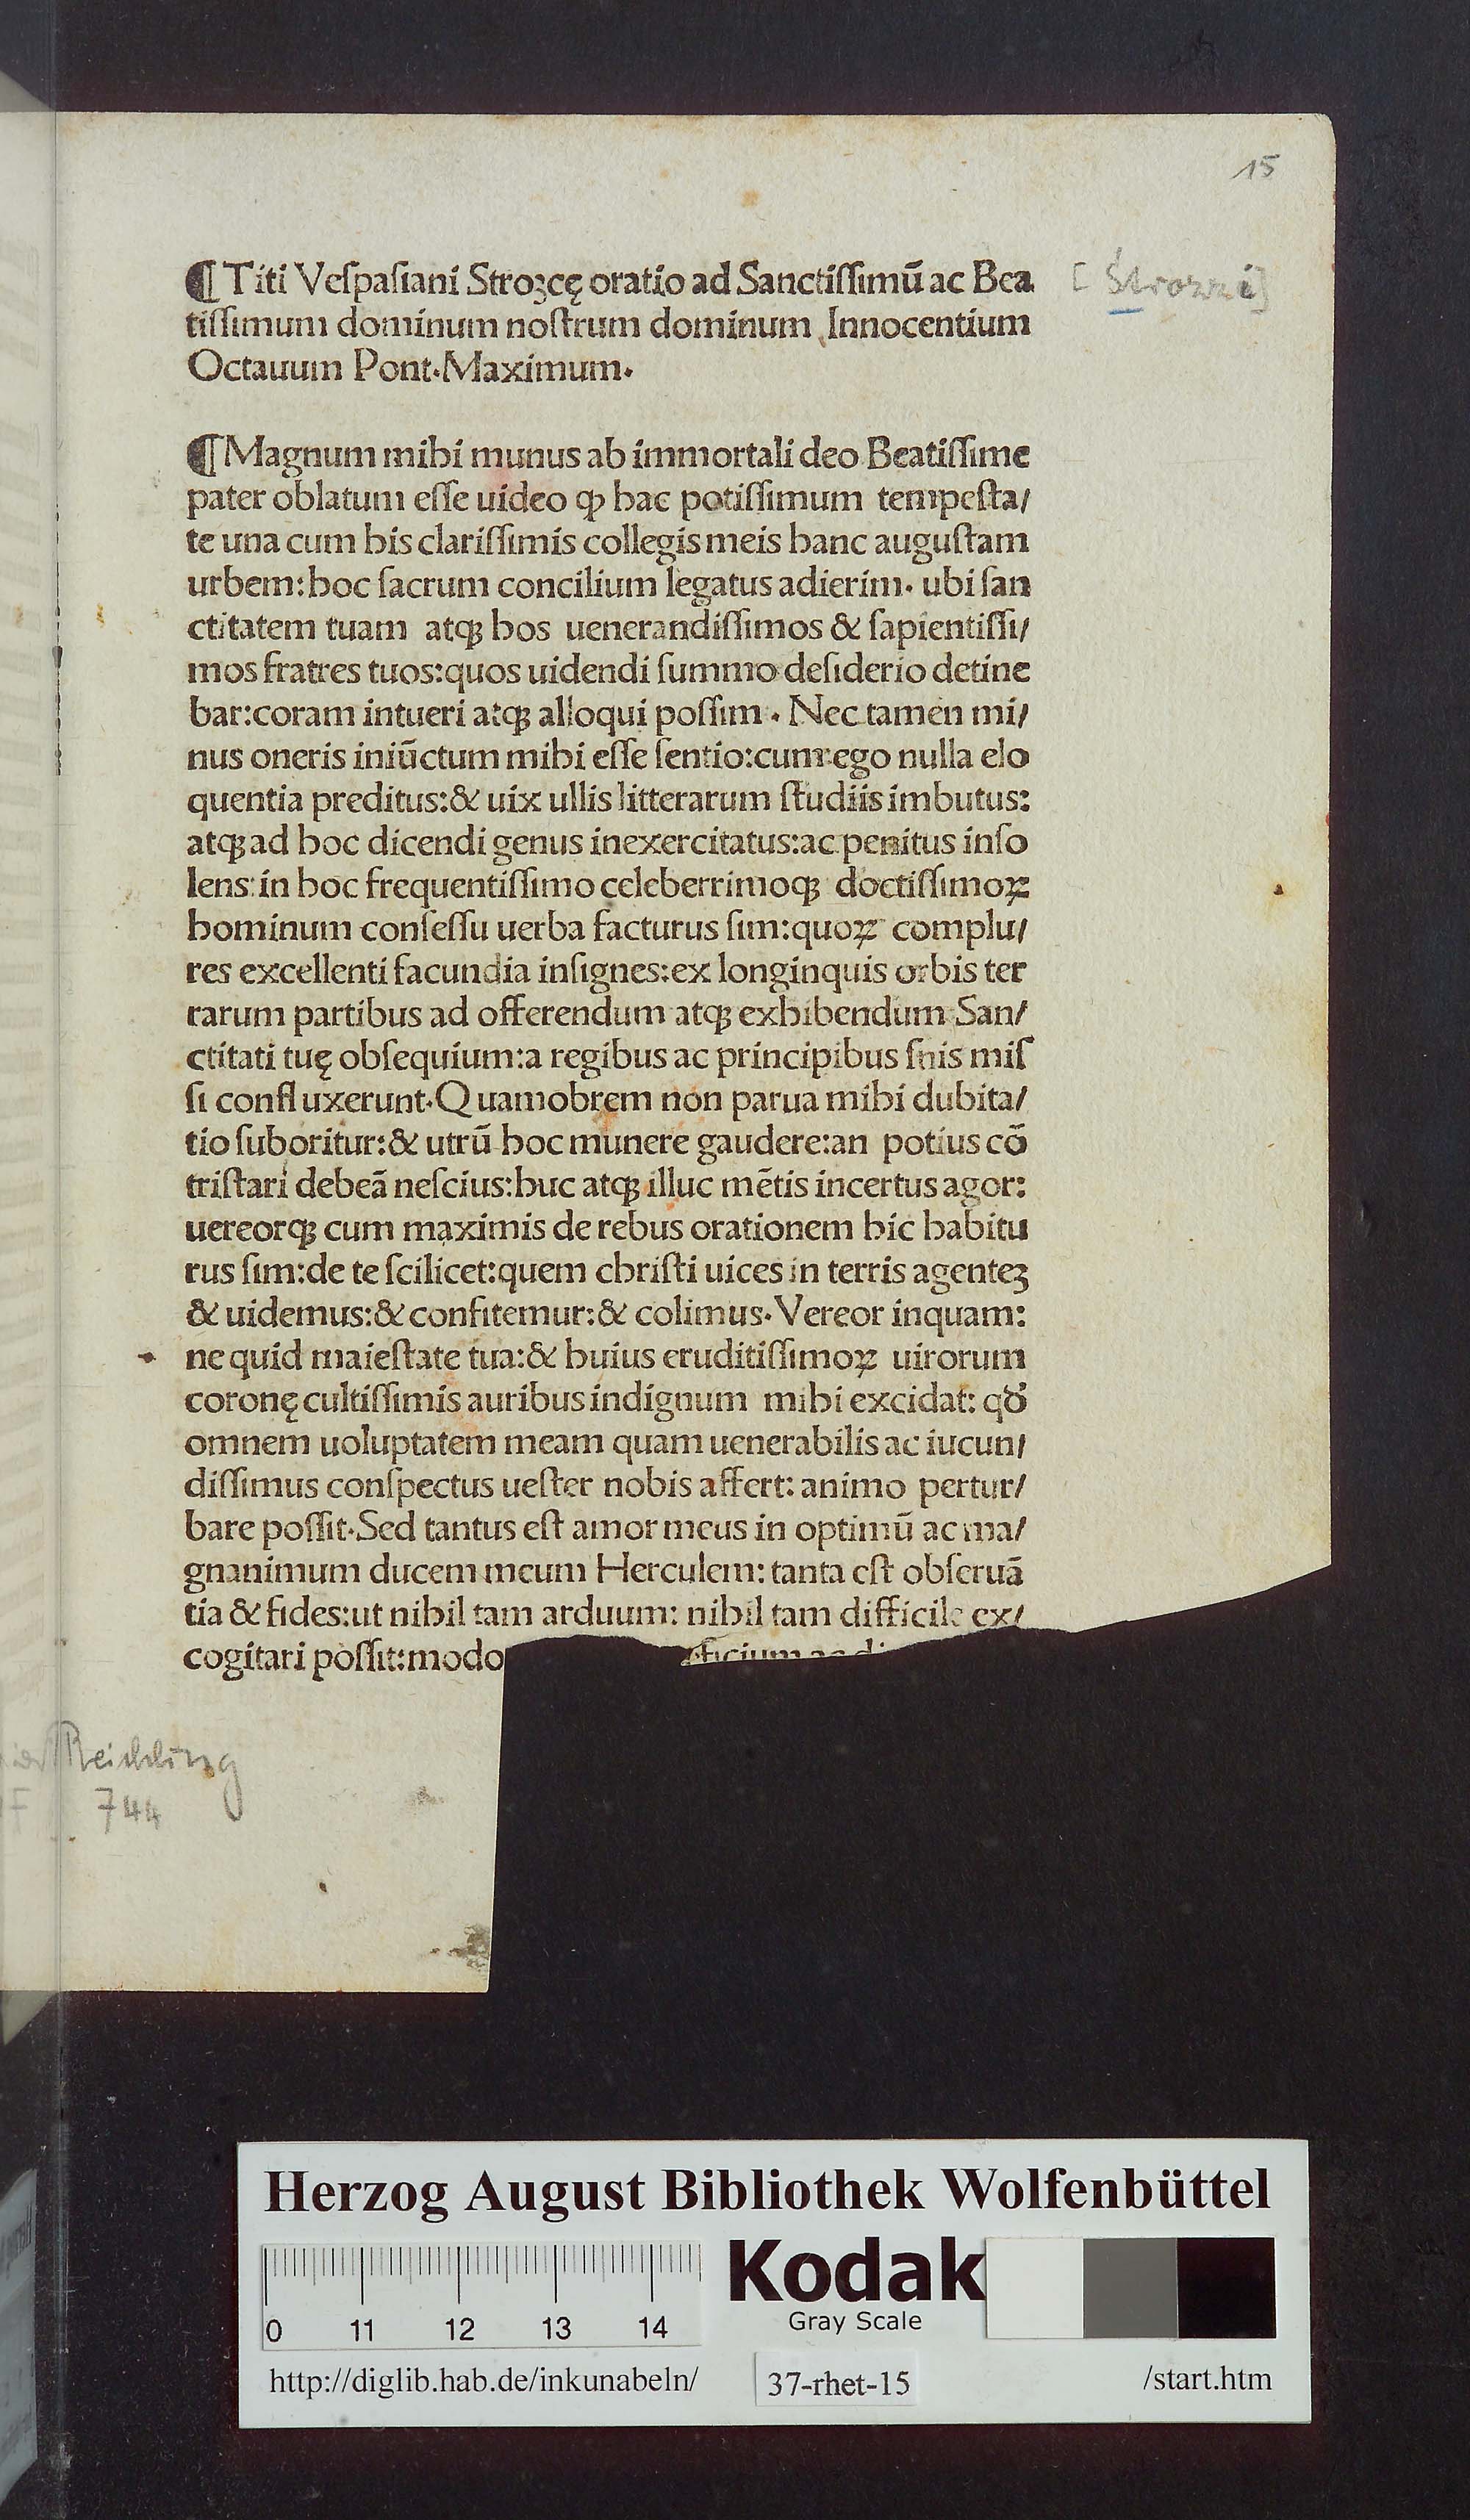 15
¶ Titi Veſpaſiani Strozcę oratio ad Sanctiſſimū ac Bea
[Strozzi]
tiſſimum dominum noſtrum dominum Innocentium
Octauum Pont.Maximum.
¶ Magnum mihi munus ab immortali deo Beatiſſime
pater oblatum eſſe uideo ꝙ hac potiſſimum tempeſta/
te una cum his clariſſimis collegis meis hanc auguſtam
urbem:hoc ſacrum concilium legatus adierim. ubi ſan
ctitatem tuam atqꝫ hos uenerandiſſimos & ſapientiſſi/
mos fratres tuos:quos uidendi ſummo deſiderio detine
bar:coram intueri atqꝫ alloqui poſſim. Nec tamen mi/
nus oneris iniūctum mihi eſſe ſentio:cum ego nulla elo
quentia preditus:& uix ullis litterarum ſtudiis imbutus:
atqꝫ ad hoc dicendi genus inexercitatus:ac penitus inſo
lens:in hoc frequentiſſimo celeberrimoqꝫ doctiſſimoꝝ
hominum conſeſſu uerba facturus ſim:quoꝝ complu/
res excellenti facundia inſignes:ex longinquis orbis ter
rarum partibus ad offerendum atqꝫ exhibendum San/
ctitati tuę obſequium:a regibus ac principibus ſuis miſ
ſi confluxerunt.Quamobrem non parua mihi dubita/
tio ſuboritur:& utrū hoc munere gaudere:an potius cō
triſtari debeā neſcius:huc atqꝫ illuc mētis incertus agor:
uereorqꝫ cum maximis de rebus orationem hic habitu
rus ſim:de te ſcilicet:quem chriſti uices in terris agenteꝫ
& uidemus:& confitemur:& colimus.Vereor inquam:
ne quid maieſtate tua:& huius eruditiſſimoꝝ uirorum
coronę cultiſſimis auribus indignum mihi excidat: qđ
omnem uoluptatem meam quam uenerabilis ac iucun/
diſſimus conſpectus ueſter nobis affert: animo pertur/
bare poſſit.Sed tantus eſt amor meus in optimū ac ma/
gnanimum ducem meum Herculem: tanta eſt obſeruā
tia & fides:ut nihil tam arduum: nihil tam difficile ex/
cogitari poſſit:modo
Reichling
744
Herzog August Bibliothek Wolfenbüttel
Kodak
Gray Scale
0 11 12 13 14
http://diglib.hab.de/inkunabeln/ 37-rhet-15 /start.htm